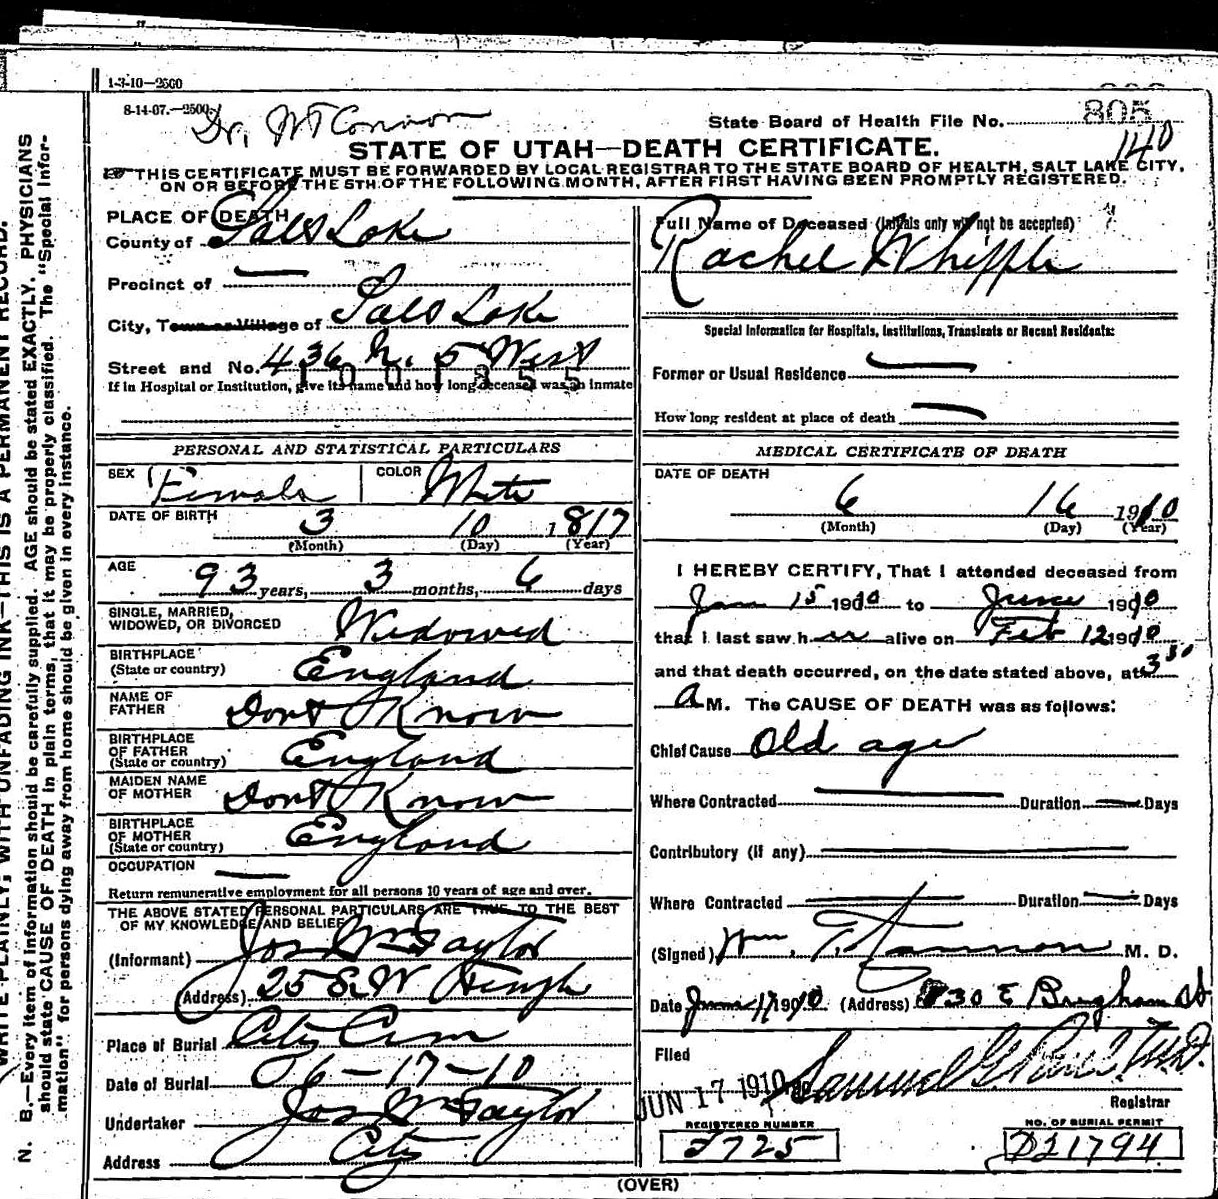 1-3-10—2500
8-14-07.—2500.
Dr.
State Board of Health File No. 805
140
STATE OF UTAH—DEATH CERTIFICATE.
THIS CERTIFICATE MUST BE FORWARDED BY LOCAL REGISTRAR TO THE STATE BOARD OF HEALTH, SALT LAKE CITY,
ON OR BEFORE THE 5TH OF THE FOLLOWING MONTH, AFTER FIRST HAVING BEEN PROMPTLY REGISTERED.
PLACE OF DEATH
County of Salt Lake
Precinct of —
City, Town or Village of Salt Lake
Street and No. 436 N. 5 West
If in Hospital or Institution, give its name and how long deceased was an inmate
Full Name of Deceased (Initials only will not be accepted)
Rachel Whipple
Special Information for Hospitals, Institutions, Transients or Recent Residents:
Former or Usual Residence —
How long resident at place of death —
PERSONAL AND STATISTICAL PARTICULARS
SEX Female COLOR White
DATE OF BIRTH 3 10 1817
(Month) (Day) (Year)
AGE 93 years, 3 months, 6 days
SINGLE, MARRIED,
WIDOWED, OR DIVORCED Widowed
BIRTHPLACE
(State or country) England
NAME OF
FATHER Dont Know
BIRTHPLACE
OF FATHER
(State or country) England
MAIDEN NAME
OF MOTHER Dont Know
BIRTHPLACE
OF MOTHER
(State or country) England
OCCUPATION —
Return remunerative employment for all persons 10 years of age and over.
THE ABOVE STATED PERSONAL PARTICULARS ARE TRUE TO THE BEST
OF MY KNOWLEDGE AND BELIEF
(Informant) Jos Wm Taylor
(Address) 25 S. W Temple
Place of Burial City Cem
Date of Burial 6-17-10
Undertaker Jos Wm Taylor
Address City
MEDICAL CERTIFICATE OF DEATH
DATE OF DEATH
6 16 1910
(Month) (Day) (Year)
I HEREBY CERTIFY, That I attended deceased from
Jan 15 1910 to June 1910
that I last saw her alive on Feb 12 1910
and that death occurred, on the date stated above, at 3 30
A M. The CAUSE OF DEATH was as follows:
Chief Cause Old age
Where Contracted — Duration — Days
Contributory (if any)
Where Contracted Duration — Days
(Signed) Wm. T. Cannon M. D.
Date June 17 1910 (Address) 730 E Brigham St
Filed
JUN 17 1910 Samuel G. Paul M.D.
Registrar
REGISTERED NUMBER
J725
NO. OF BURIAL PERMIT
D21794
(OVER)
WRITE PLAINLY, WITH UNFADING INK—THIS IS A PERMANENT RECORD.
N. B.—Every item of information should be carefully supplied. AGE should be stated EXACTLY. PHYSICIANS
should state CAUSE OF DEATH in plain terms, that it may be properly classified. The "Special Infor-
mation" for persons dying away from home should be given in every instance.